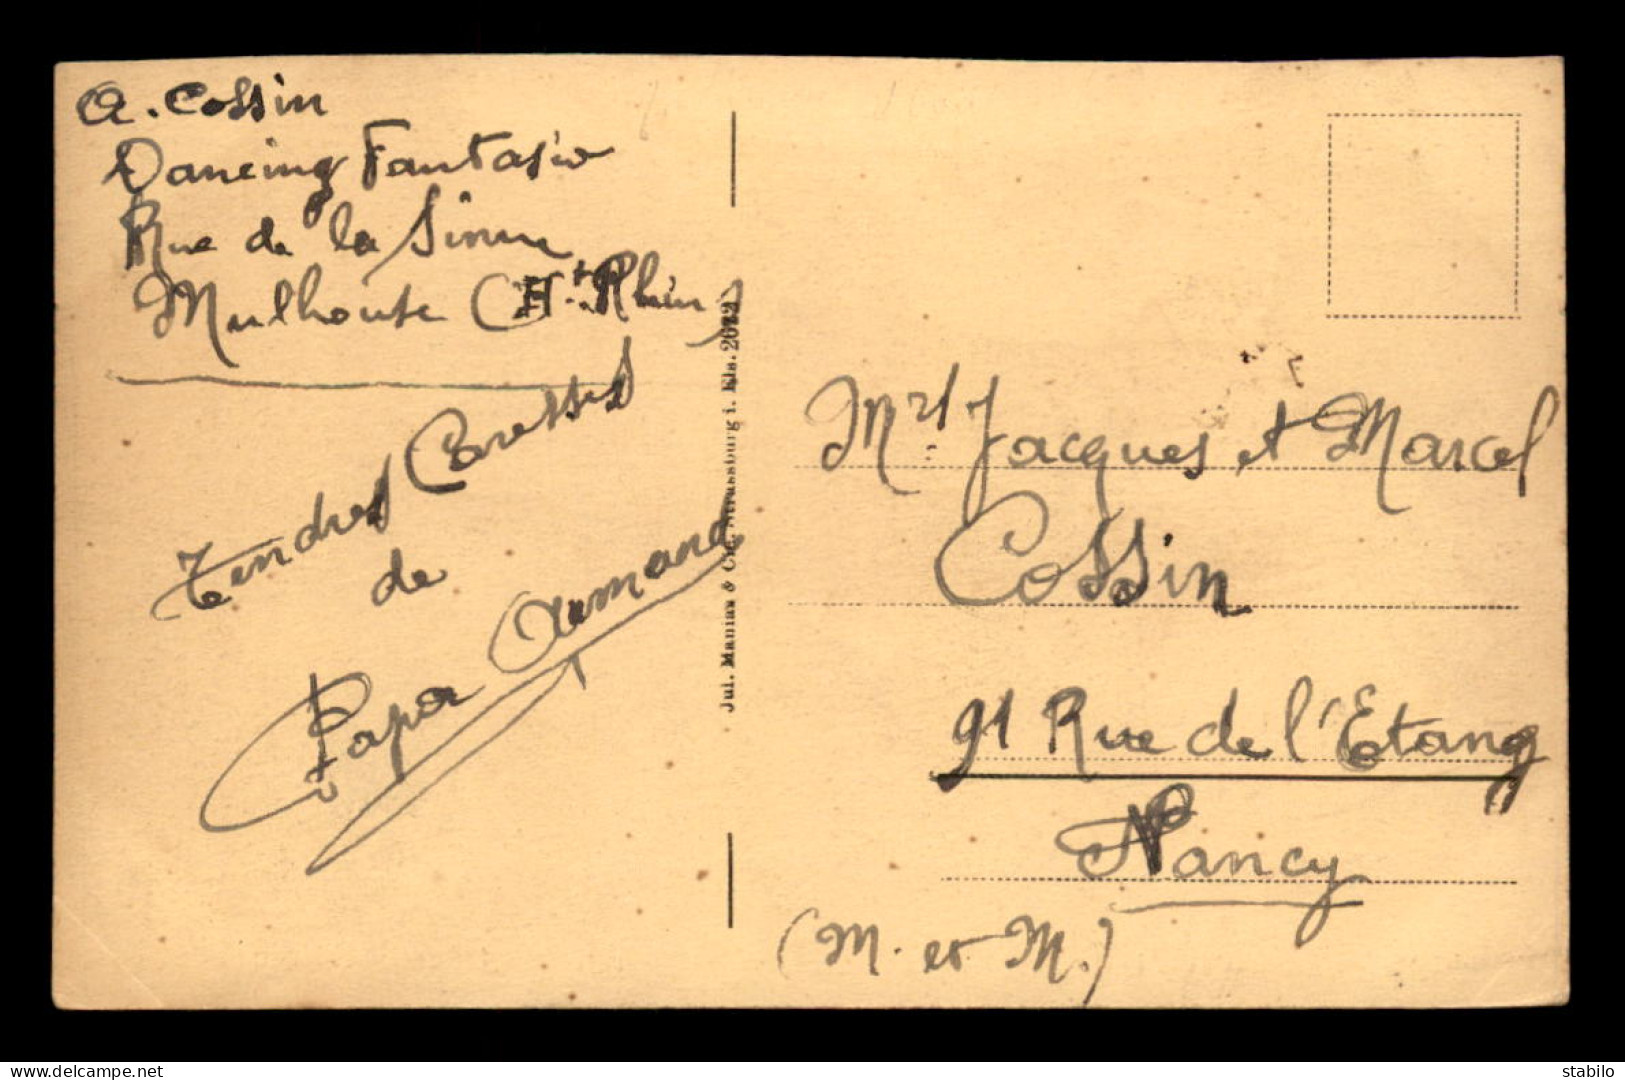 A. Cossin
Dancing Fantasio
Rue de la Sinne
Mulhouse (Ht. Rhin)
Tendres Caresses
de
Papa Armand
Jul. Manias & Cie. Strassburg i. Els.
Mrs. Jacques et Marcel
Cossin
91 Rue de l'Etang
Nancy
(M. et M.)
www.delcampe.net
stabilo